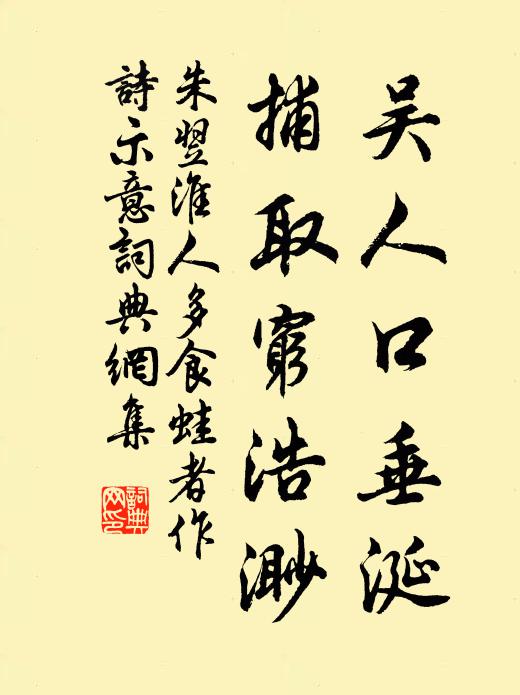 吴人口垂涎
捕取窮浩渺
朱翌淮人多食蛙者作
詩示意詞典網集
詞典
网印